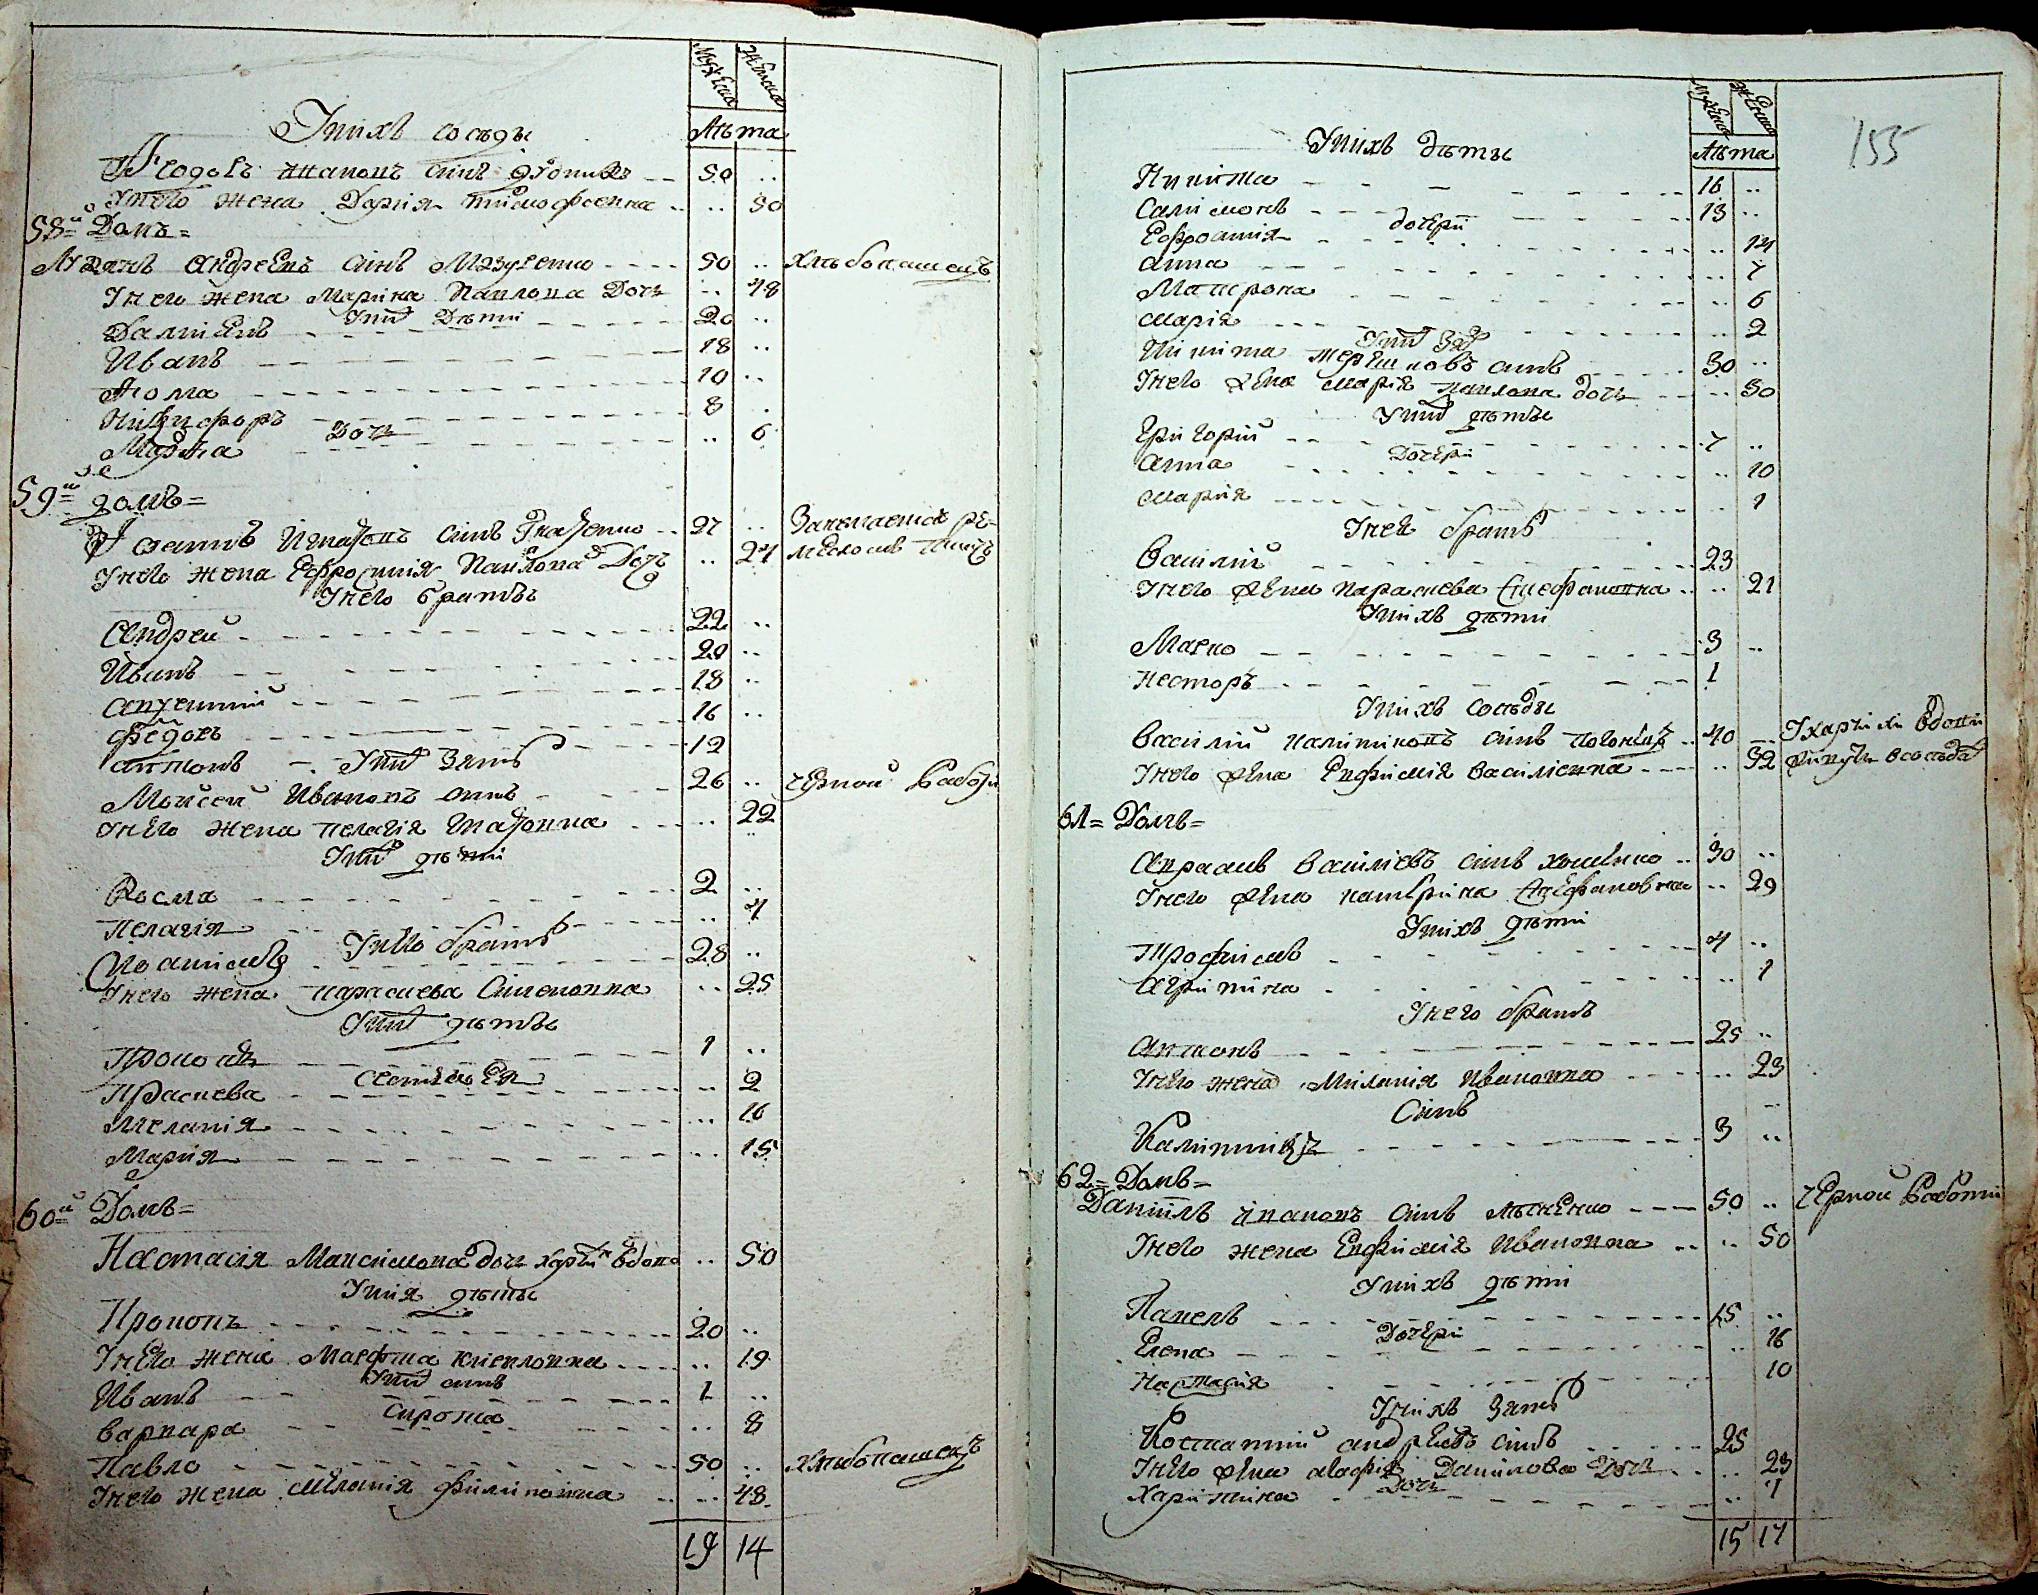 Мужеска
Женска
Лѣта
У нихъ сосѣды
Феодоръ Ивановъ синъ 50 ..
У него жена Дария Тимофеевна .. 50
58й Домъ =
Лукянъ Андреевъ синъ Мазуренко 50 .. хлѣбопашецъ
У него жена Марина Павлова Дочь .. 48
У них Дѣти
Дамиенъ 20 ..
Иванъ 18 ..
Фома 10 ..
Никифоръ 8 ..
Дочь
Марфа .. 6
59й домъ =
Игнатовъ синъ Гнатенко 27 .. Занимаетса ре-
У него жена Ефросиния Павлова Дочь .. 24 меслом ткацъ
У него братья
Андрей 22 ..
Иванъ 20 ..
Авксентий 18 ..
Федоръ 16 ..
Антонъ 12
У них Зять
Моисей Ивановъ синъ 26 .. черной работи
У него жена Пелагія Игнатовна .. 22
У них дѣти
Косма 2 ..
Пелагія .. 4
У него братъ
28 ..
У него жена Параскева Симеоновна .. 25
У них дѣтьи
Прокопъ 1 ..
Праскева .. 2
Мелания .. 16
Мария .. 15
60й Домъ =
Настасія Максимова дочь вдова .. 50
У нія дѣты
Прокопъ 20 ..
У него жена Марфта Кириловна .. 19
У них синъ
Иванъ 1 ..
Сирота
Варвара .. 8
Павло 50 .. хлѣбопашецъ
У него жена Мелания Филиповна .. 48
19 14
155
Мужеска
Женска
Лѣта
У нихъ дѣты
Никита 16 ..
Салимонъ 13 ..
дочери
Ефросинія .. 14
Анна .. 7
Матрона .. 6
Марія .. 2
У них Зят
Никита синъ 30 ..
У него жена Мария Павлова дочь .. 30
У них дѣты
Григорий 7 ..
Дочери
Анна .. 10
Мария .. 1
У нея братъ
Василий 23
У него жена Параскева Стефановна .. 21
У нихъ дѣти
Марко 3 ..
Несторъ 1
У нихъ сосѣды
Василий синъ 40 .. вдови
У него жена Евфимія Василиевна .. 32
61 = Домъ =
Авраамъ Василіевъ синъ 30 ..
У него жена Катерина Стефановна .. 29
У нихъ дѣти
Трофимъ 4 ..
Агрипина .. 1
У него братъ
Антонъ 25 ..
У него жена Миланія Ивановна .. 23
Синъ
3 ..
62 = Домъ =
Даниилъ Ивановъ синъ 50 .. черной работи
У него жена Евфимія Ивановна .. 50
У нихъ дѣти
Павелъ 15 ..
Дочери
Елена .. 16
Настасія 10
У нихъ Зять
Костантий Андреевъ синъ 25
У него жена Агафія Данилова Дочь .. 23
Дочь
Харитина .. 1
15 17